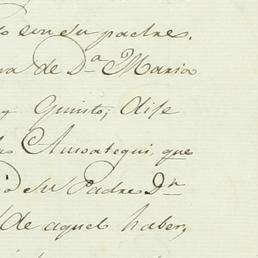 con su padre.
de D.ª Maria
y Quinto; dise
Amoategui, que
su Padre Dn
de aquel haber,